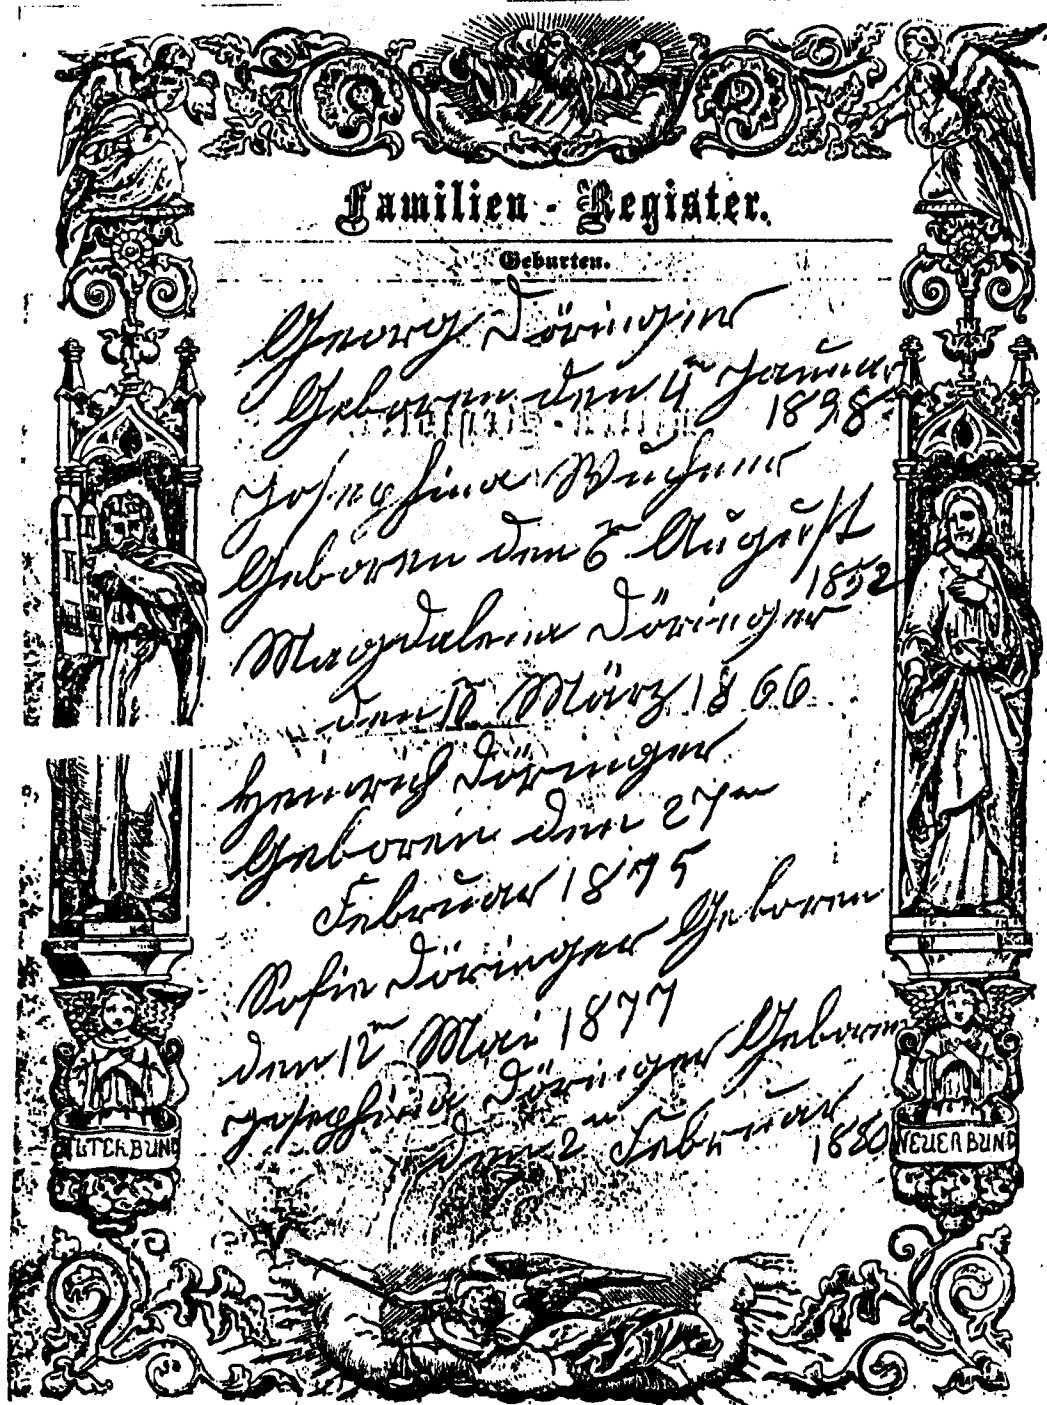 Familien-Register.
Geburten.
Georg Döringer
Geboren den 4n Januar
1838
Josephina
Geboren den August
1852
Magdalena Döringer
den März 1866
Heinrich Döringer
Geboren den 27n
Februar 1875
Sofia Döringer Geboren
den 12n Mai 1877
Josephina Döringer Geboren
den 2n Februar
1880
ALTERBUND
NEUERBUND